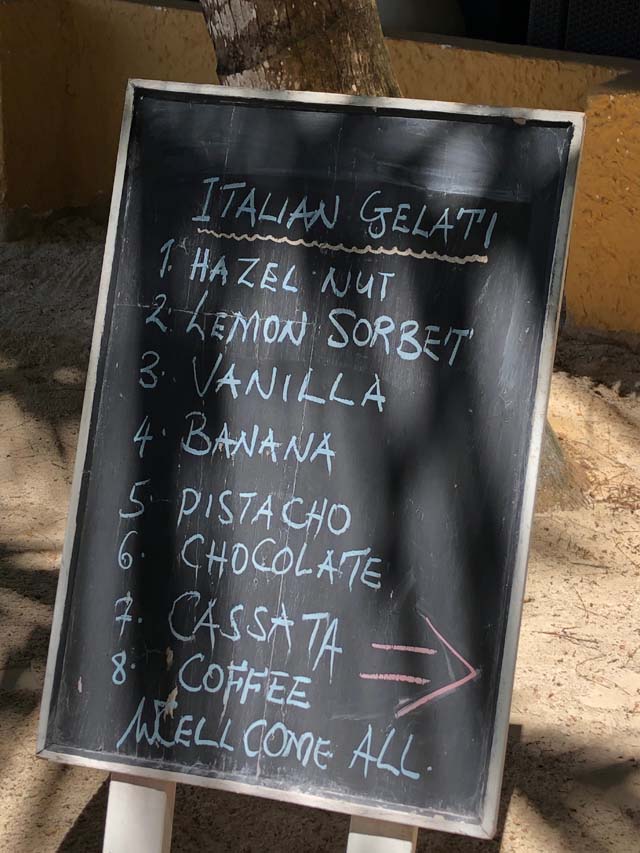 ITALIAN GELATI
1. HAZEL NUT
2. LEMON SORBET
3. VANILLA
4. BANANA
5. PISTACHO
6. CHOCOLATE
7. CASSATA
8. COFFEE
WELLCOME ALL.